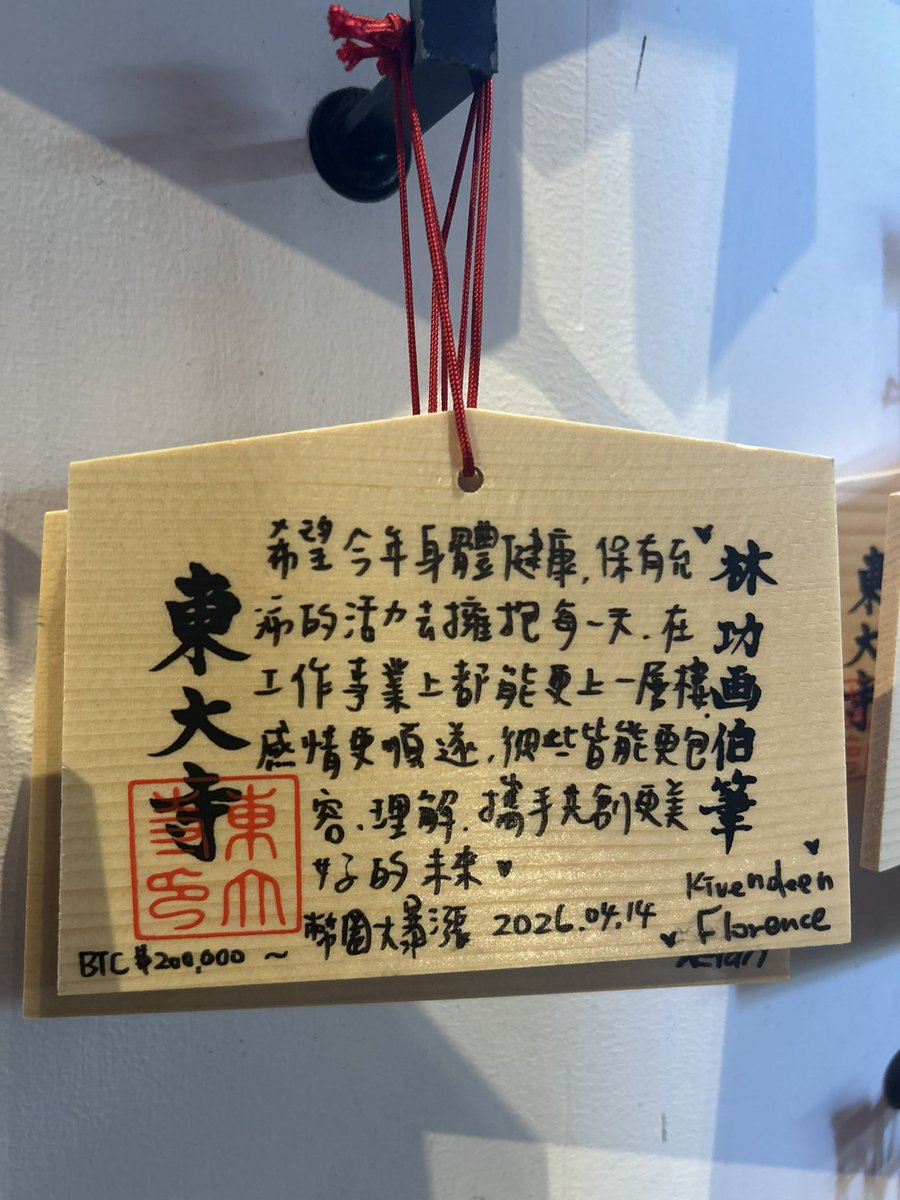 希望今年身體健康，保有充
沛的活力去擁抱每一天．在
工作事業上都能更上一層樓．
感情更順遂，彼此皆能更包
容、理解．攜手共創更美
好的未來
幣圈大暴漲 2026.04.14
BTC $200,000 ~
Kivendeen
Florence
林功画伯筆
東大寺
東大寺印
東大寺